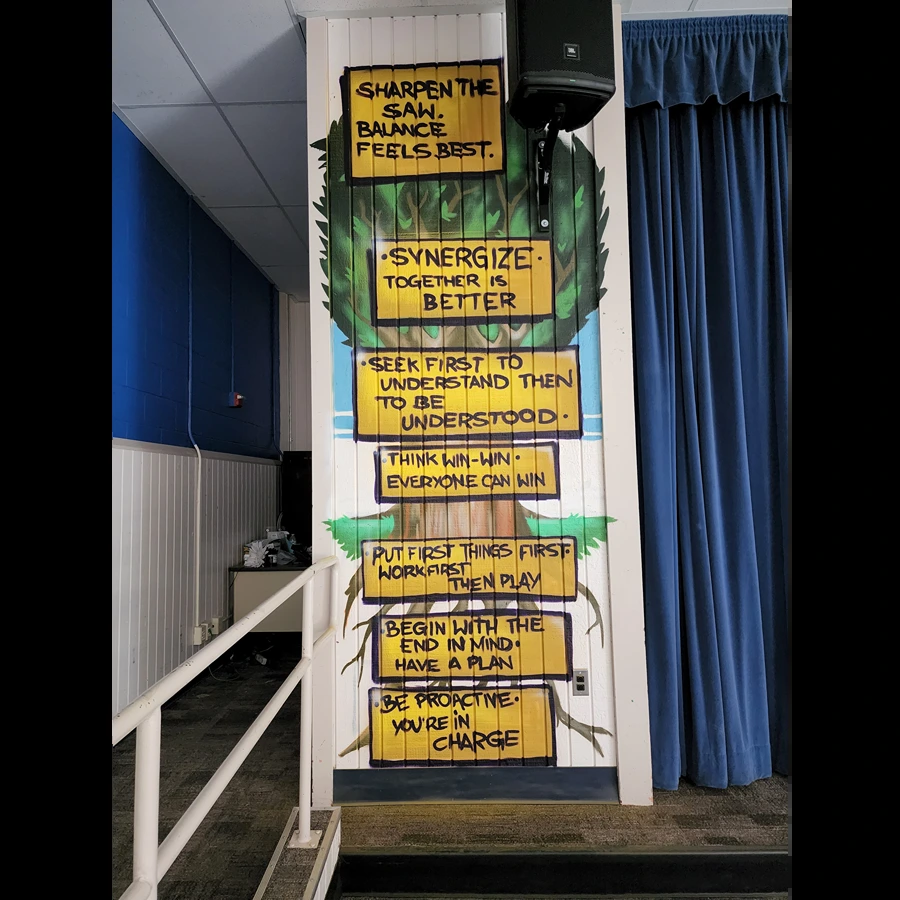 JBL
SHARPEN THE
SAW.
BALANCE
FEELS BEST.
·SYNERGIZE·
TOGETHER IS
BETTER
·SEEK FIRST TO
UNDERSTAND THEN
TO BE
UNDERSTOOD·
·THINK WIN-WIN·
EVERYONE CAN WIN
·PUT FIRST THINGS FIRST·
WORK FIRST
THEN PLAY
·BEGIN WITH THE
END IN MIND·
HAVE A PLAN
·BE PROACTIVE·
YOU'RE IN
CHARGE